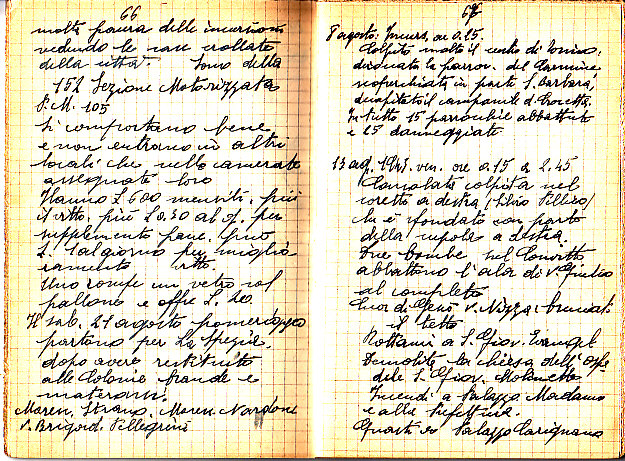 66
molta paura delle incursioni
vedendo le case crollate
della città. Sono della
152 Sezione Motorizzata
P.M. 105
Si comportano bene
e non entrano in altri
locali che nelle camerate
assegnate loro
Hanno £ 600 mensili, più
il vitto, più £ 0.50 al g. per
supplemento pane, più
£. 1 al giorno per miglio
ramento vitto.
Uno rompe un vetro col
pallone e offre £. 20
Il sab. 21 agosto pomeriggio
partono per La Spezia,
dopo avere restituito
alle Colonie brande e
materassi.
Maresc. Strano, Maresc. Nardone
V. Brigad. Pellegrini
67
8 agosto. Incurs, ore 0.15.
Colpito molto il centro di Torino.
distrutta la parroc. del Carmine
scoperchiata in parte S. Barbara,
decapitato il campanile d. Crocetta.
In tutto 15 parrocchie abbattute
e 25 danneggiate
13 ag. 1943. ven. ore 0.15 a 2.45
Consolata colpita nel
coretto a destra (Silvio Pellico)
che è sfondato con parte
della cupola a destra.
Due bombe nel Convitto
abbattono l'ala di v. Giulio
al completo
Cuor di Gesù v. Nizza: bruciato
il tetto
Rottami a S. Giov. Evangel.
Demolita la chiesa dell'Ospe
dale S. Giov. Molinette
Incendi a Palazzo Madama
e alla Prefettura.
Guasti a Palazzo Carignano